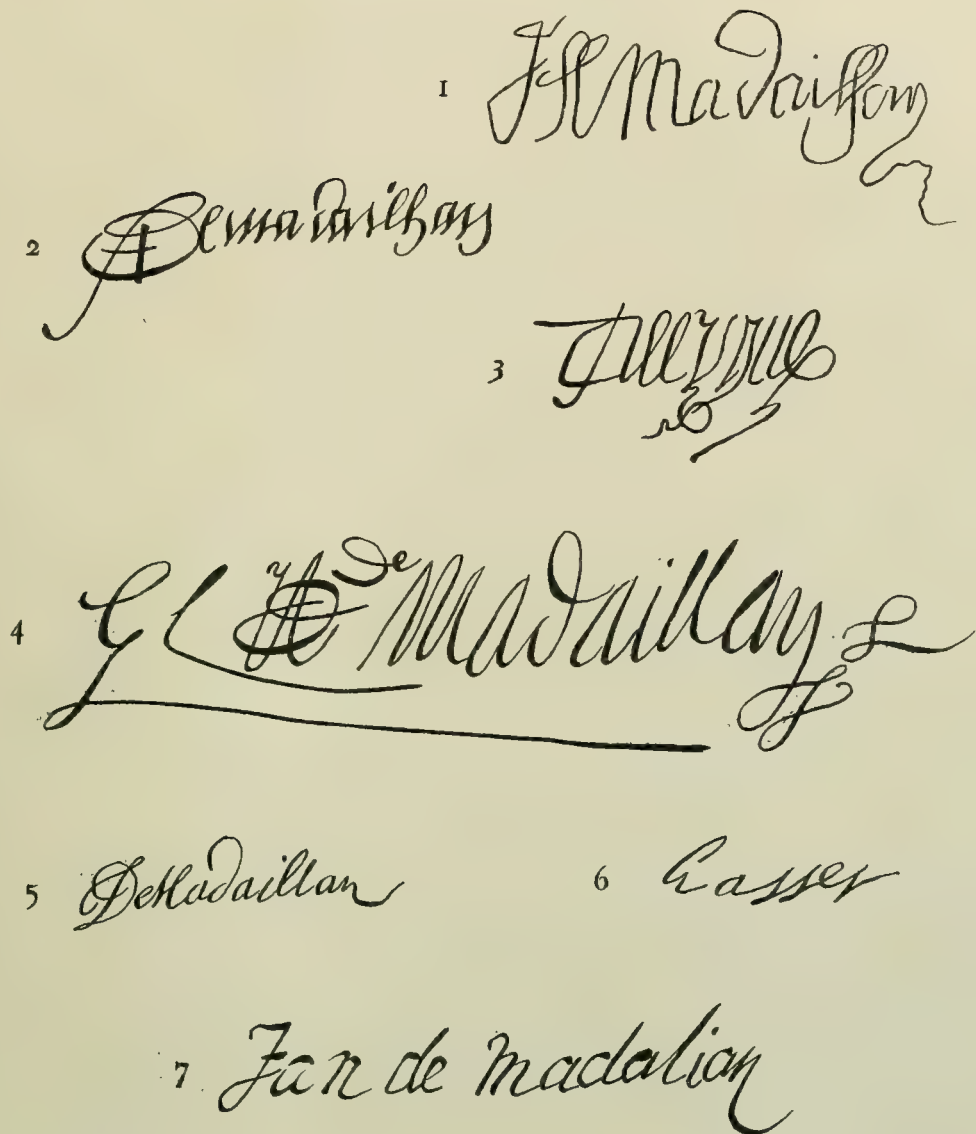 1 Madaillan
2 Demadailhan
3
4 G L De Madaillan
5 DeMadaillan
6 Lassey
7 Jan de madalian